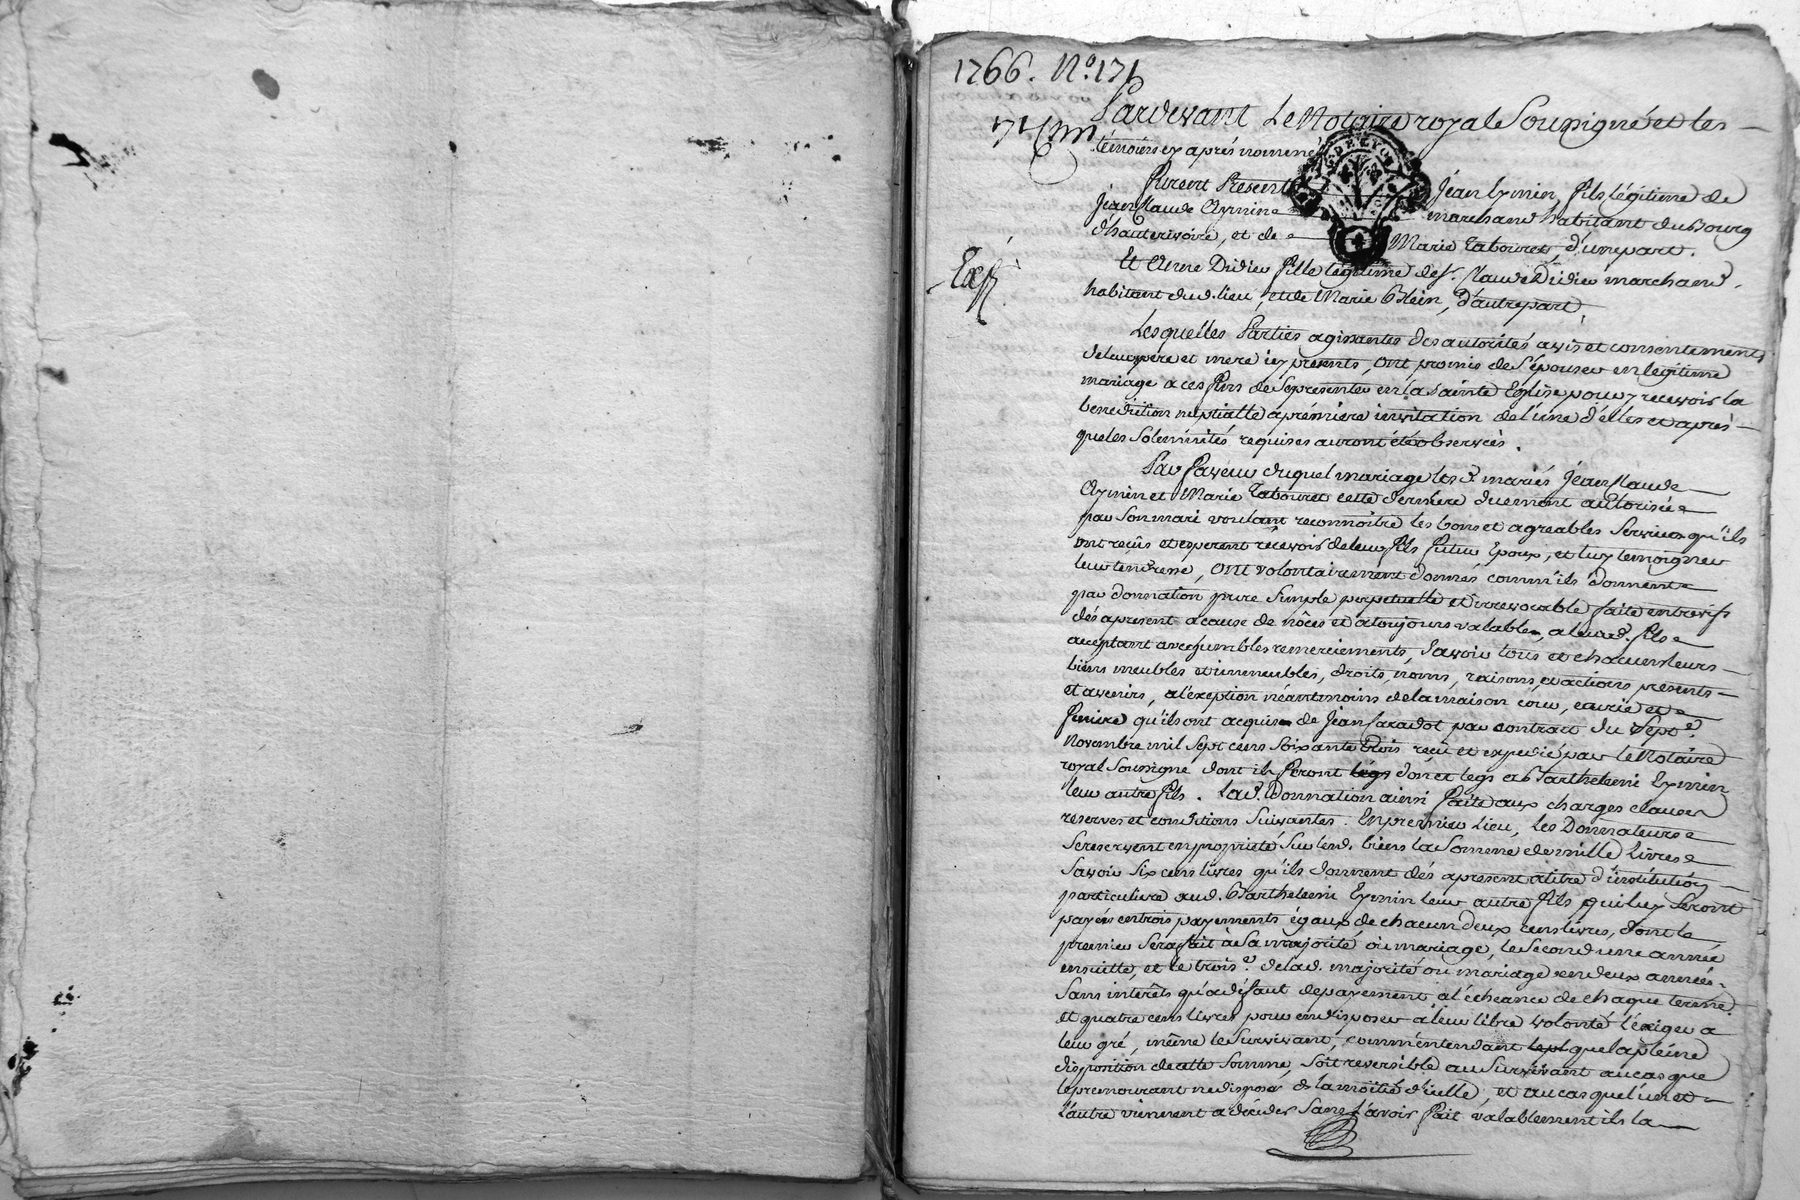 1766. N.º 171
Pardevant Le Notaire royal Soussigné et les
témoins cy aprés nommés
G. DE LYON
Furent Presents Jean Eymin, fils légitime de
Jean Claude Eymin marchand habitant du Bourg
d'hauterivoire, et de Marie Tabouret, d'une part.
Et Anne Didieu fille légitime de sr. Claude Didieu marchand
Exp.
habitant dud. lieu et de Marie Blein, d'autre part,
Lesquelles Parties agissantes des autorités avis et consentements
de leurs pere et mere icy presents, ont promis de S'épouser en legitime
mariage a ces fins de Se presenter en la sainte Eglise pour y recevoir la
benediction nuptialle a premiere invitation de l'une d'elles et aprés
que les Solemnités requises auront été observées.
En faveur duquel mariage les d. mariés Jean Claude
Eymin et Marie Tabouret cette derniere duement autorisée
par Son mari voulant reconnoître les bons et agreables Services qu'ils
ont reçûs et esperent recevoir de leur fils futur Epoux, et luy temoigner
leur tendresse, ont volontairement donnés comm'ils donnent
par donnation pure Simple perpetuelle et irrevocable faite entrevifs
dés apresent a cause de nôces et a toujours valable, a leurd. fils
acceptant avec humbles remerciements, Savoir tous et chacuns leurs
biens meubles et immeubles, droits, noms, raisons, et actions presents
et avenirs, a l'exeption néantmoins de la maison cour, ecurie et
feniere qu'ils ont acquis de Jean Caradot par contrat du Sept.e
Novembre mil Sept cens Soixante trois reçû et expedié par le Notaire
royal Soussigné dont ils feront don et legs a Barthelemi Eymin
leur autre fils. Lad. Donnation ainsi faite aux charges clauses
reserves et conditions Suivantes. En premier Lieu, Les Donnateurs
Se reservent en proprieté Sur lesd. biens la Somme de mille Livres
Savoir Six cens livres qu'ils donnent dés apresent a titre d'institution
particuliere aud. Barthelemi Eymin leur autre fils qui luy Seront
payés en trois payements égaux de chacun deux cens livres, dont le
premier Sera fait à Sa majorité ou mariage, le Second une année
ensuitte, et le trois.e de lad. majorité ou mariage en deux années.
Sans interêts qu'a défaut de payement a l'écheance de chaque terme
et quatre cens livres pour en disposer a leur libre volonté l'exiger a
leur gré, même le Survivant, comm'entendant que la pleine
disposition de cette Somme, Soit reversible au Survivant au cas que
le premourant ne dispose de la moitié d'icelle, et au cas que l'un et
l'autre viennent a déceder Sans l'avoir fait valablement ils la